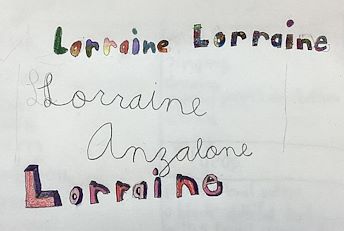 Lorraine Lorraine
LLorraine
Anzalone
Lorraine